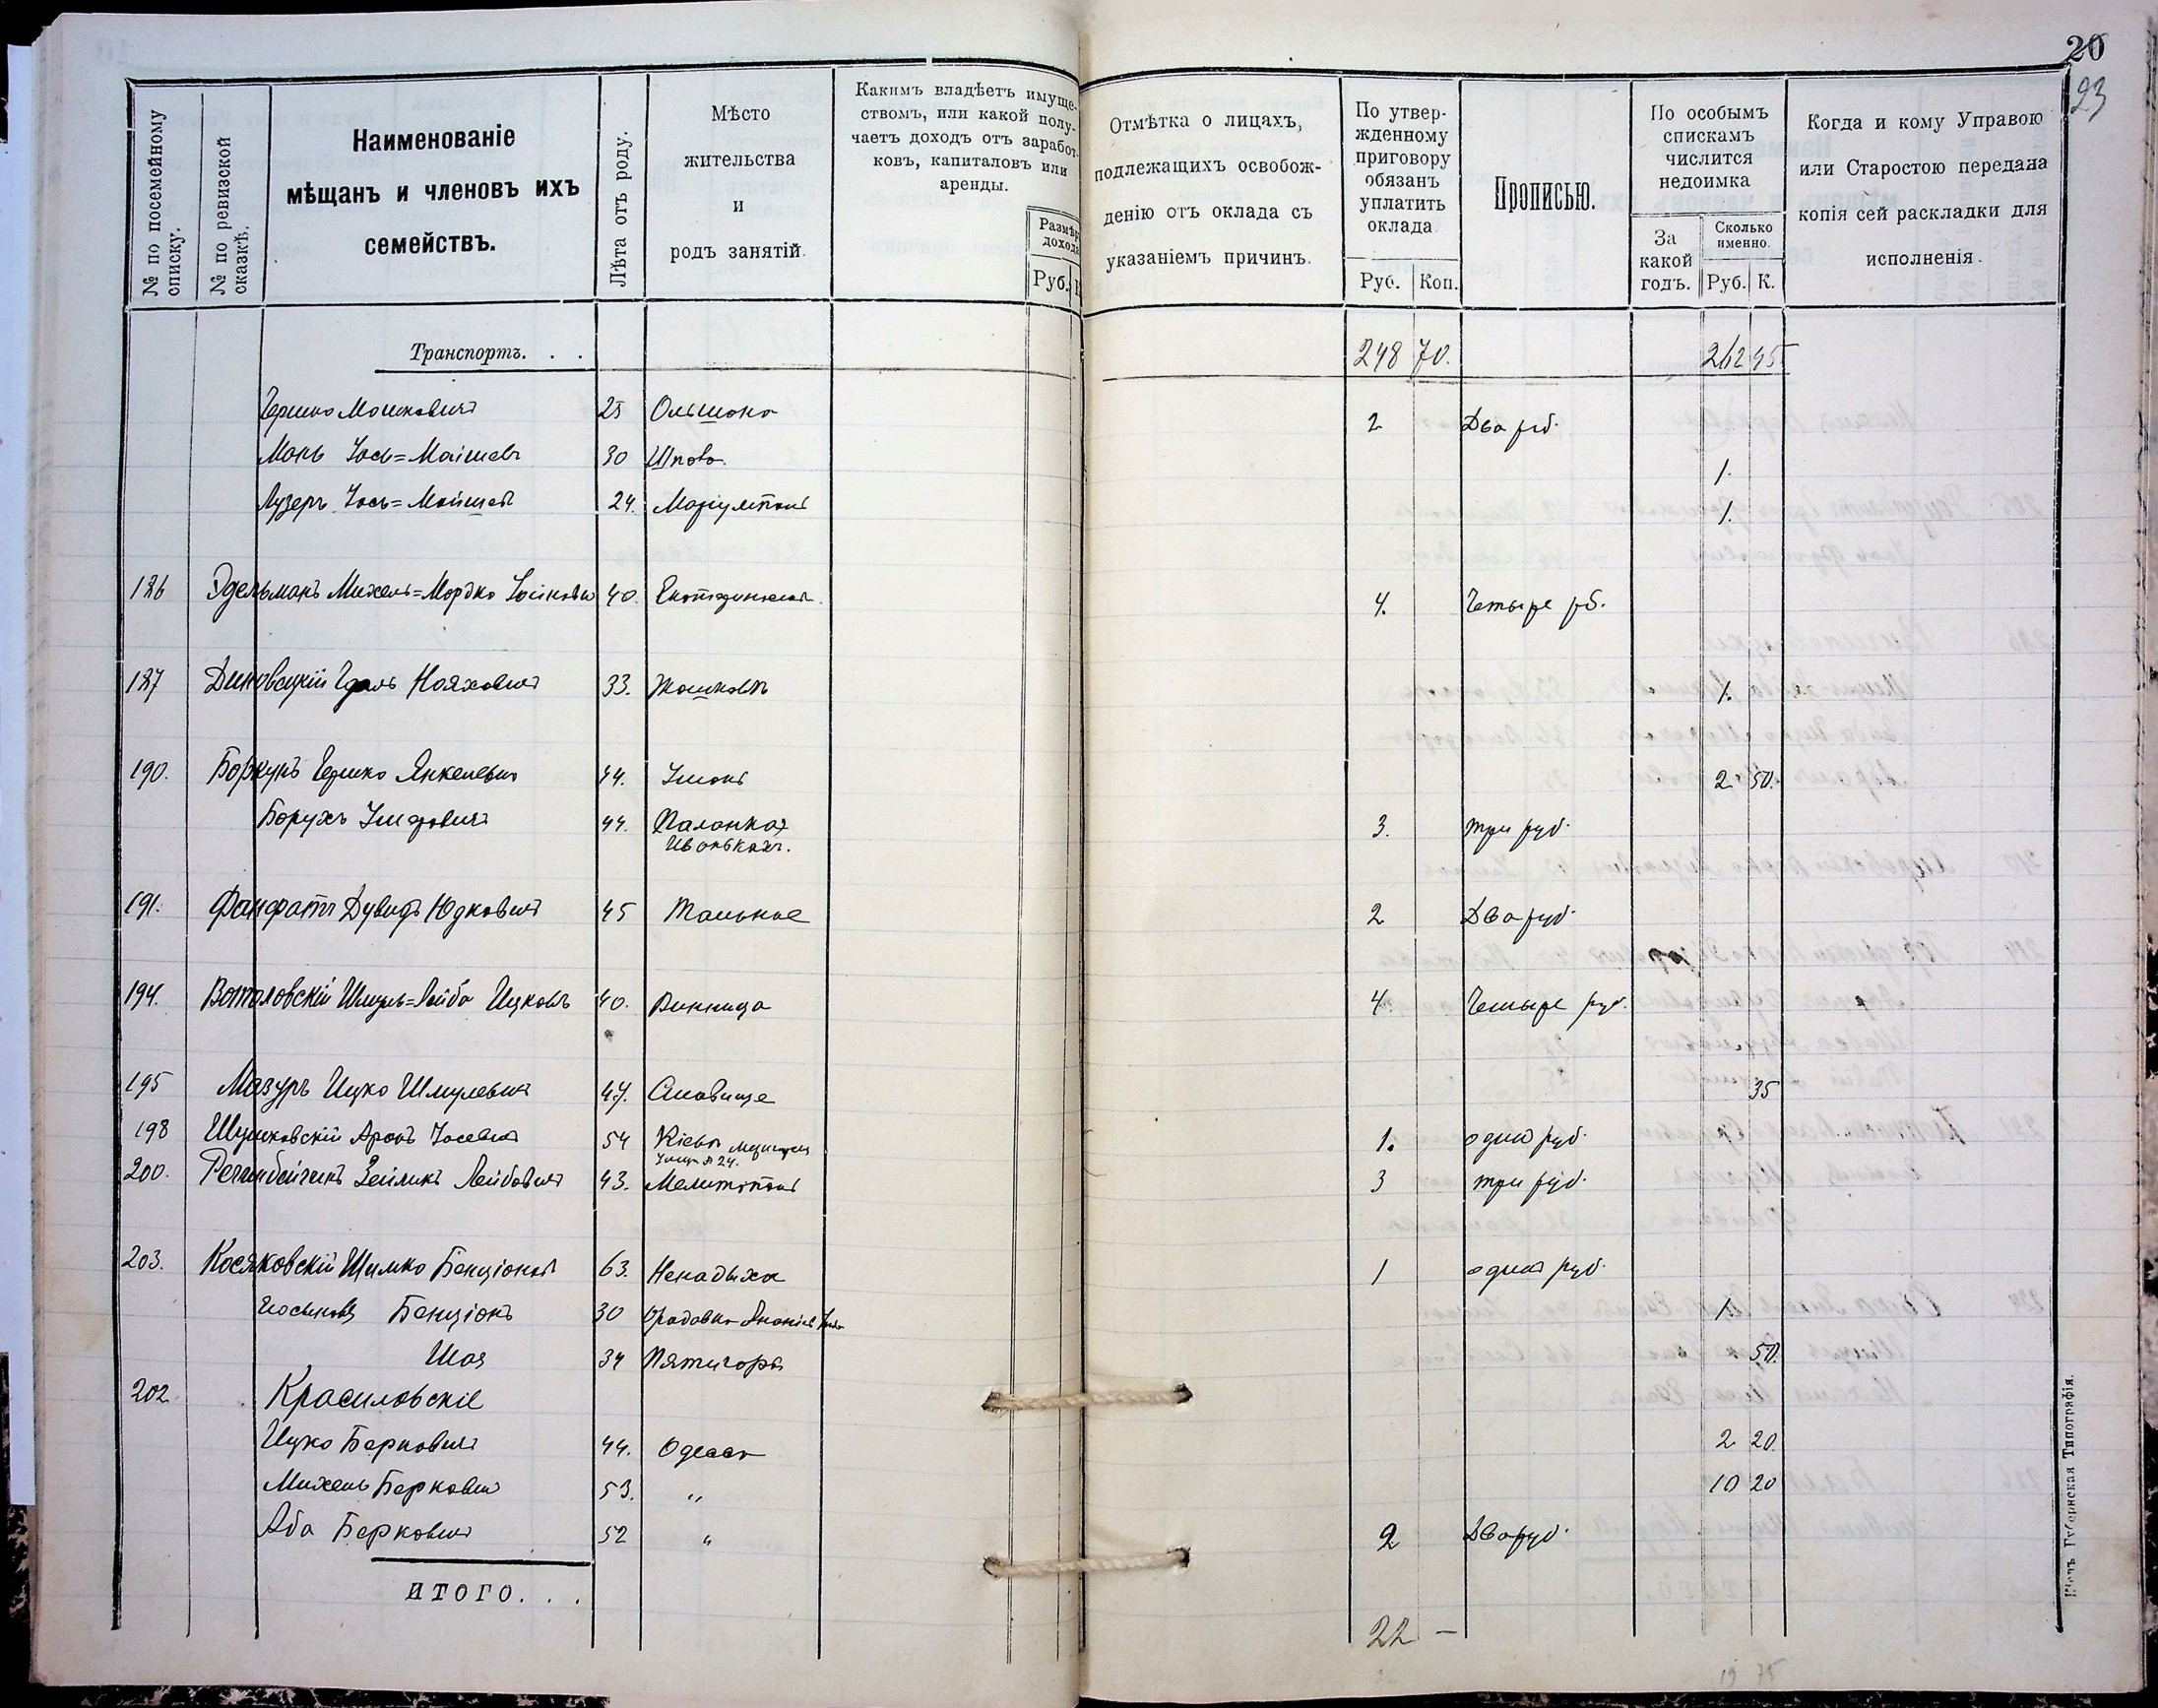 20
23
№ по посемейному списку.
№ по ревизской сказкѣ.
Наименованіе
мѣщанъ и членовъ ихъ
семействъ.
Лѣта отъ роду.
Мѣсто
жительства
и
родъ занятій.
Какимъ владѣетъ имуще-
ствомъ, или какой полу-
чаетъ доходъ отъ заработ-
ковъ, капиталовъ или
аренды.
Размѣръ
дохода
Руб.
Отмѣтка о лицахъ,
подлежащихъ освобож-
денію отъ оклада съ
указаніемъ причинъ.
По утвер-
жденному
приговору
обязанъ
уплатить
оклада
Руб. Коп.
Прописью.
По особымъ
спискамъ
числится
недоимка
За
какой
годъ.
Сколько
именно.
Руб. К.
Когда и кому Управою
или Старостою передана
копія сей раскладки для
исполненія.
Транспортъ. . . 248 70. 262 45
Гершко Мошковичъ 25 Ольшана 2 Два руб.
30 Шпола. 1.
Лузеръ Іось=Мойшев 24. 1.
186 Эдельманъ Михель=Мордко 40. 4. Четыре рб.
187 Нояховичъ 33. Жашковъ 1.
190. Гершко Янкелевичъ 44. Умань 2 50.
Борухъ 44. Паланка 3. три руб.
191. Дувидъ Юдковичъ 45 Тальное 2 Два руб.
194. Шмуль=Лейба Ицковъ 40. Винница 4. Четыре руб.
195 Мазуръ Ицко Шмулевичъ 47. Ставище 35
198 Аронъ Іосевичъ 54 Кіевъ 1. один руб.
№ 24.
200. Зейликъ Лейбовичъ 43. Мелитополь 3 три руб.
203. Косяковскій Шимко Бенціонов 63. Ненадыха 1 один руб.
Бенціонъ 30 1.
Шая 34 Пятигоры 50.
202 Красиловскіе
Ицко Берковичъ 44. Одесса 2 20
Михель Беркович 53. " 10 20
Аба Берковичъ 52 " 2 Два руб.
ИТОГО. . .
22 —
19 75
Кіевъ Губернская Типографія.